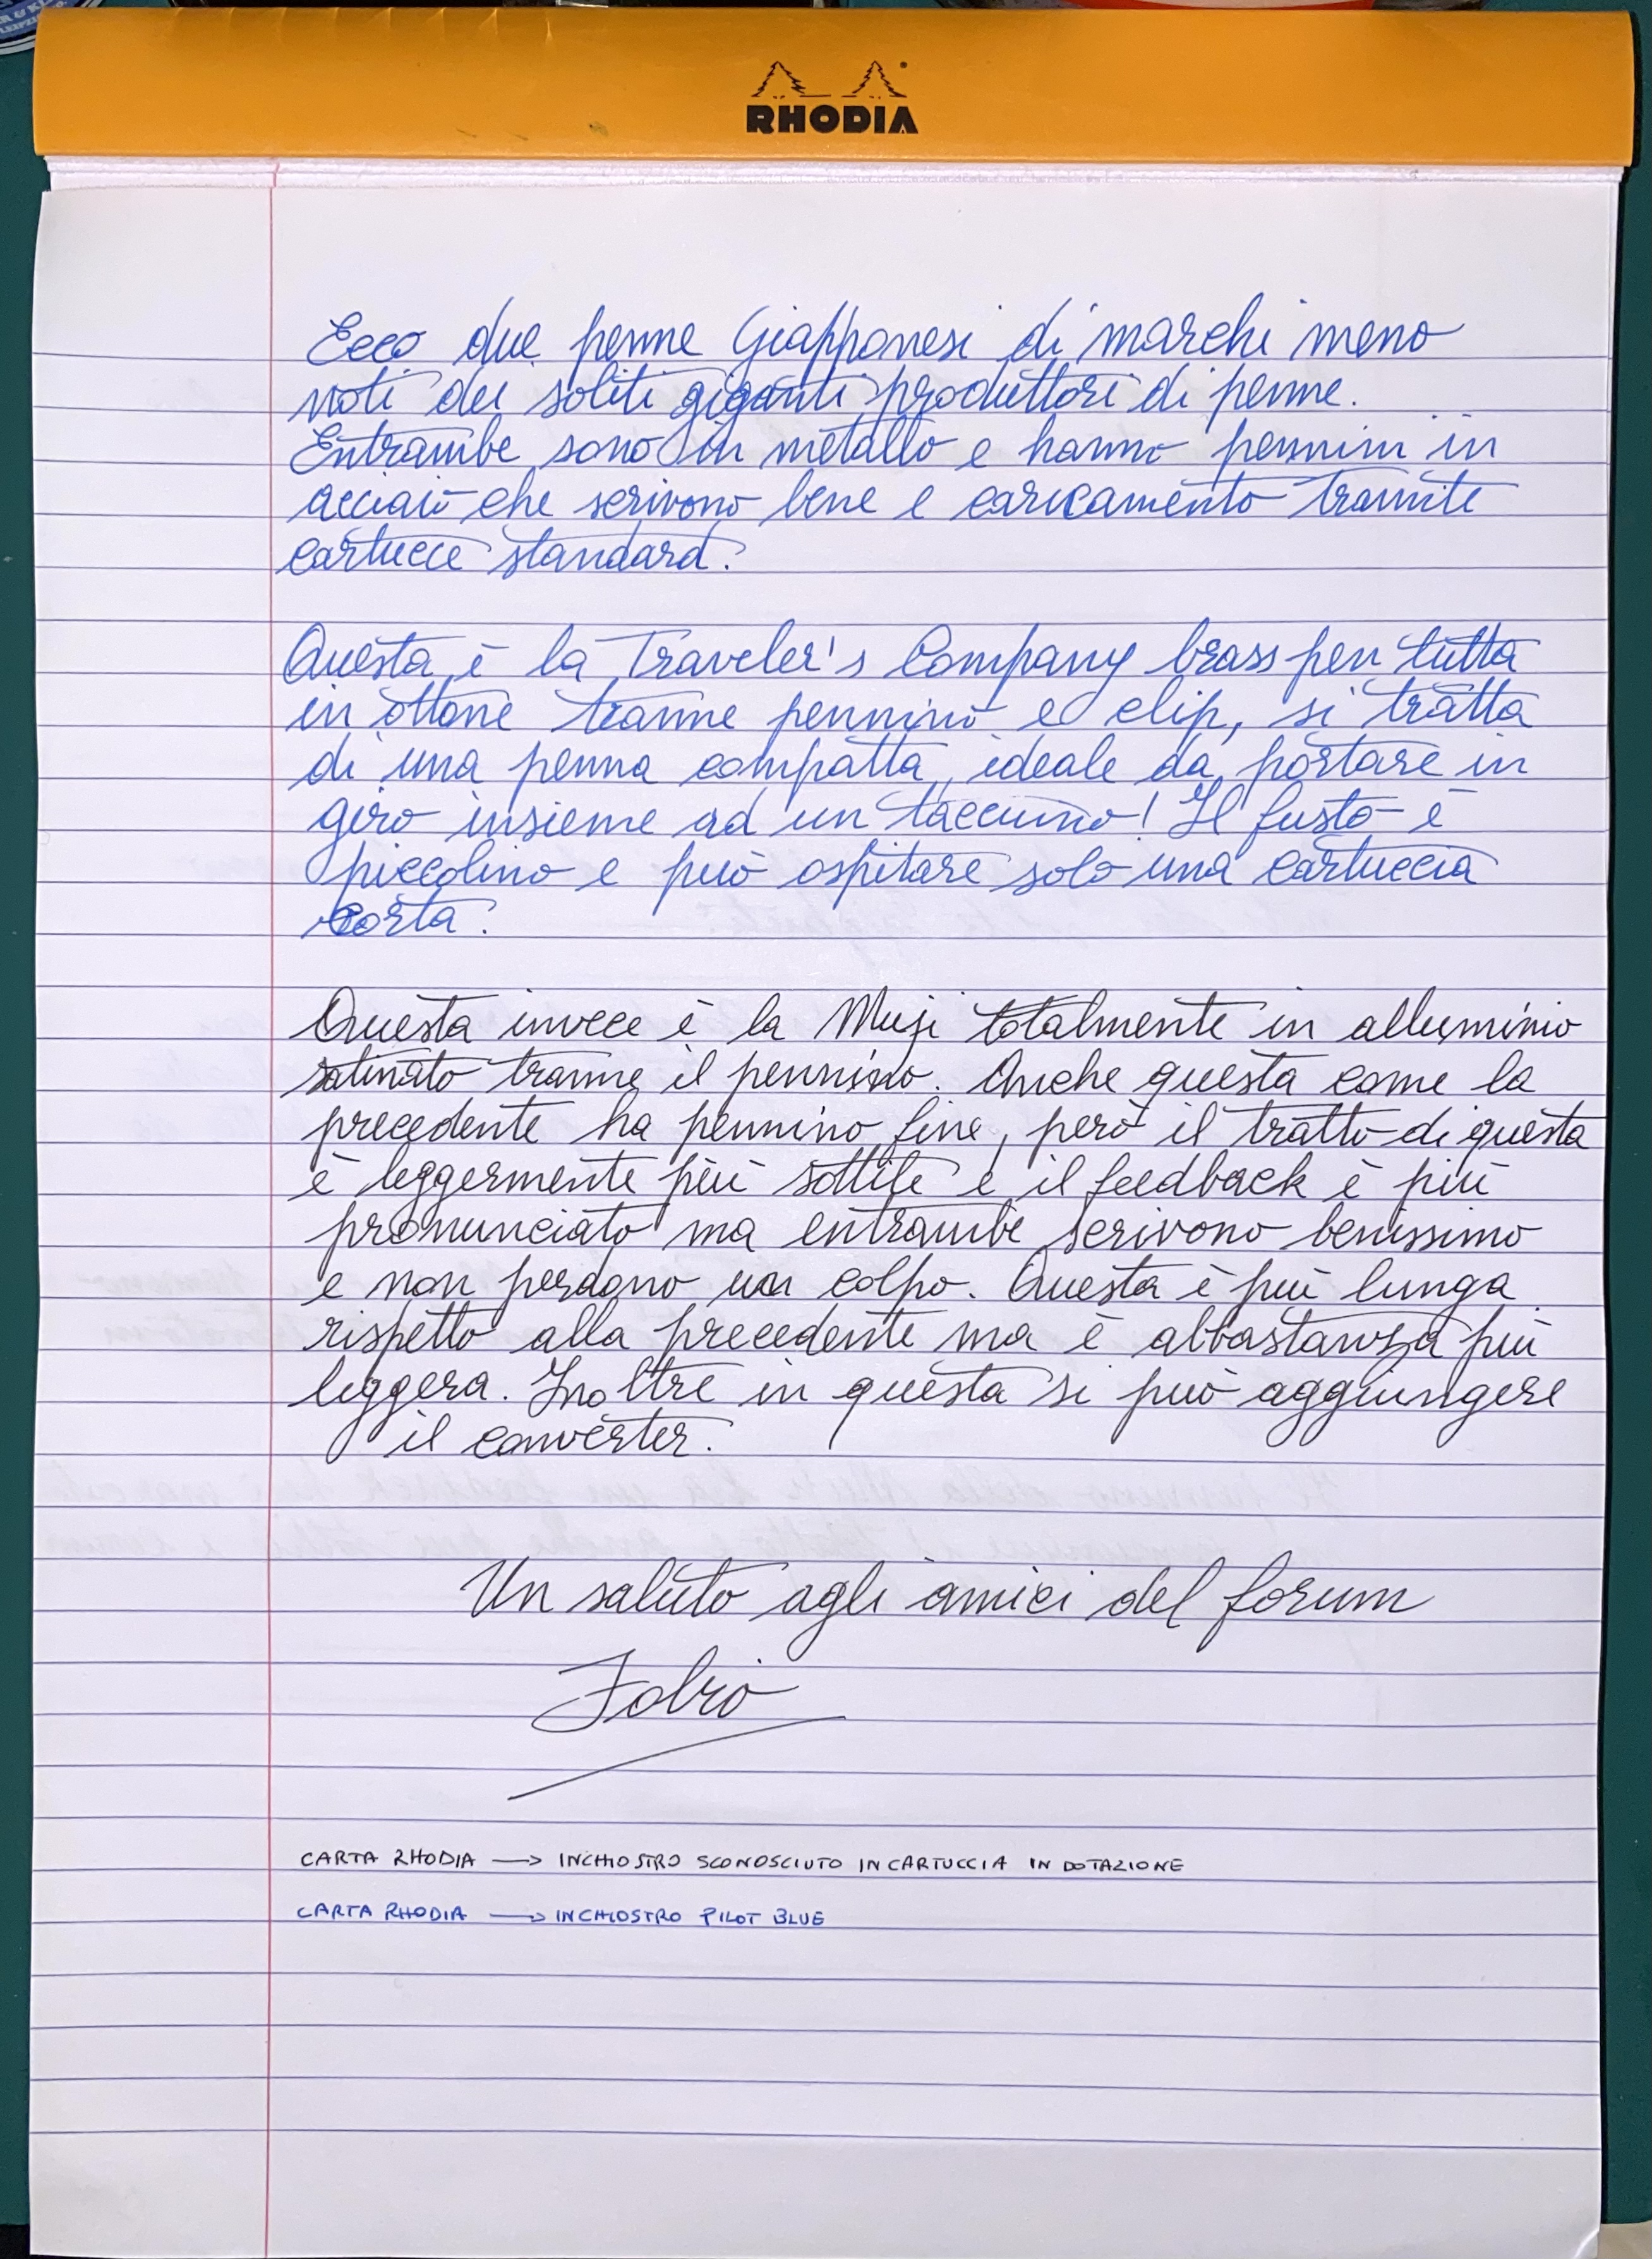 RHODIA
Ecco due penne Giapponesi di marchi meno
noti dei soliti giganti produttori di penne.
Entrambe sono in metallo e hanno pennini in
acciaio che scrivono bene e caricamento tramite
cartucce standard.
Questa è la Traveler's Company brass pen tutta
in ottone tranne pennino e clip, si tratta
di una penna compatta, ideale da portare in
giro insieme ad un taccuino! Il fusto è
piccolino e può ospitare solo una cartuccia
corta.
Questa invece è la Muji totalmente in alluminio
satinato tranne il pennino. Anche questa come la
precedente ha pennino fine, però il tratto di questa
è leggermente più sottile e il feedback è più
pronunciato ma entrambe scrivono benissimo
e non perdono un colpo. Questa è più lunga
rispetto alla precedente ma è abbastanza più
leggera. Inoltre in questa si può aggiungere
il converter.
Un saluto agli amici del forum
Fabio
CARTA RHODIA → INCHIOSTRO SCONOSCIUTO IN CARTUCCIA IN DOTAZIONE
CARTA RHODIA → INCHIOSTRO PILOT BLUE